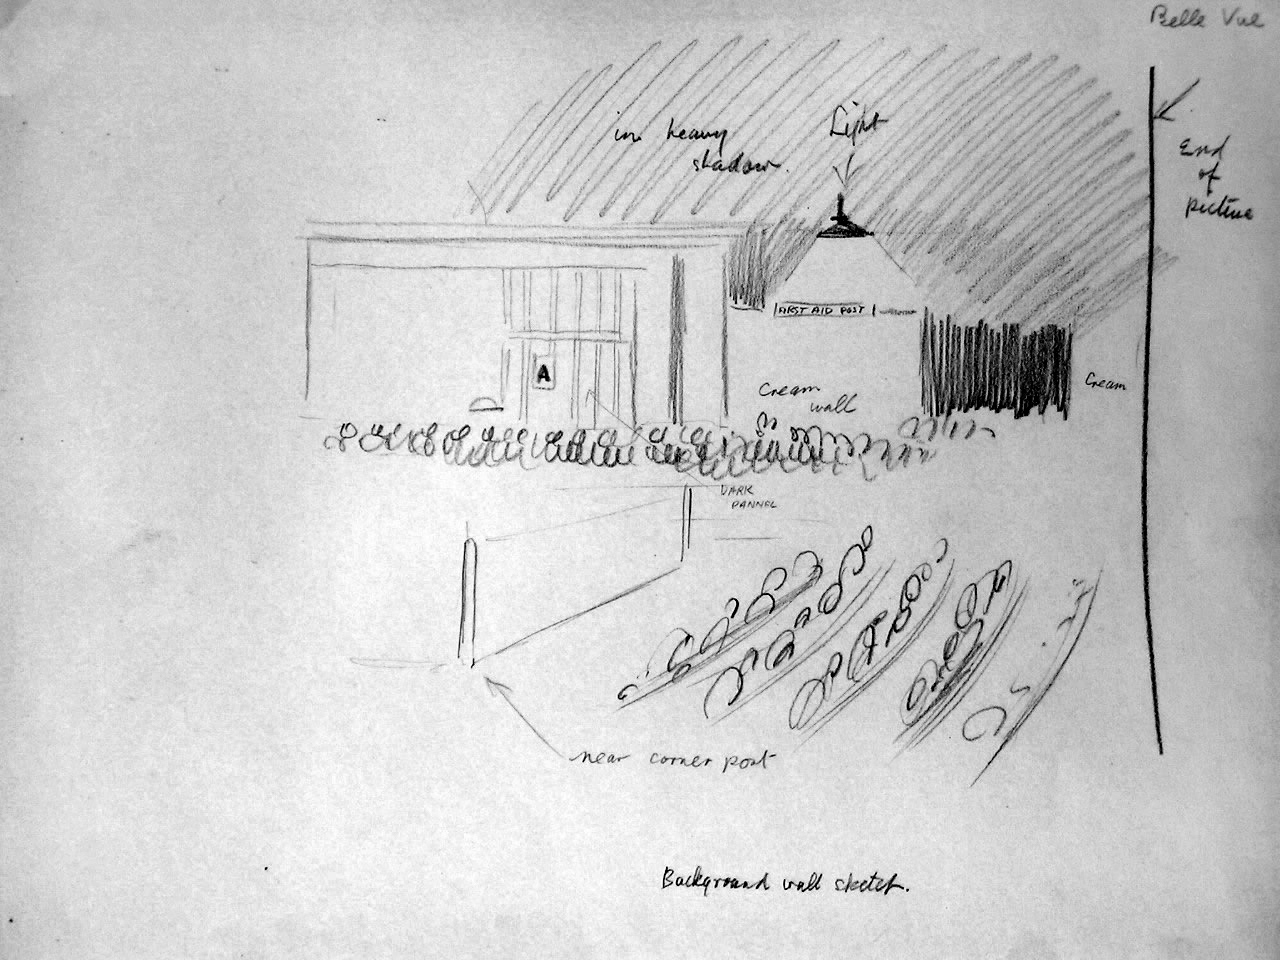 Belle Vue
in heavy
shadow.
Light
End
of
picture
FIRST AID POST
A
Cream
wall
Cream
DARK
PANNEL
near corner post
Background wall sketch.